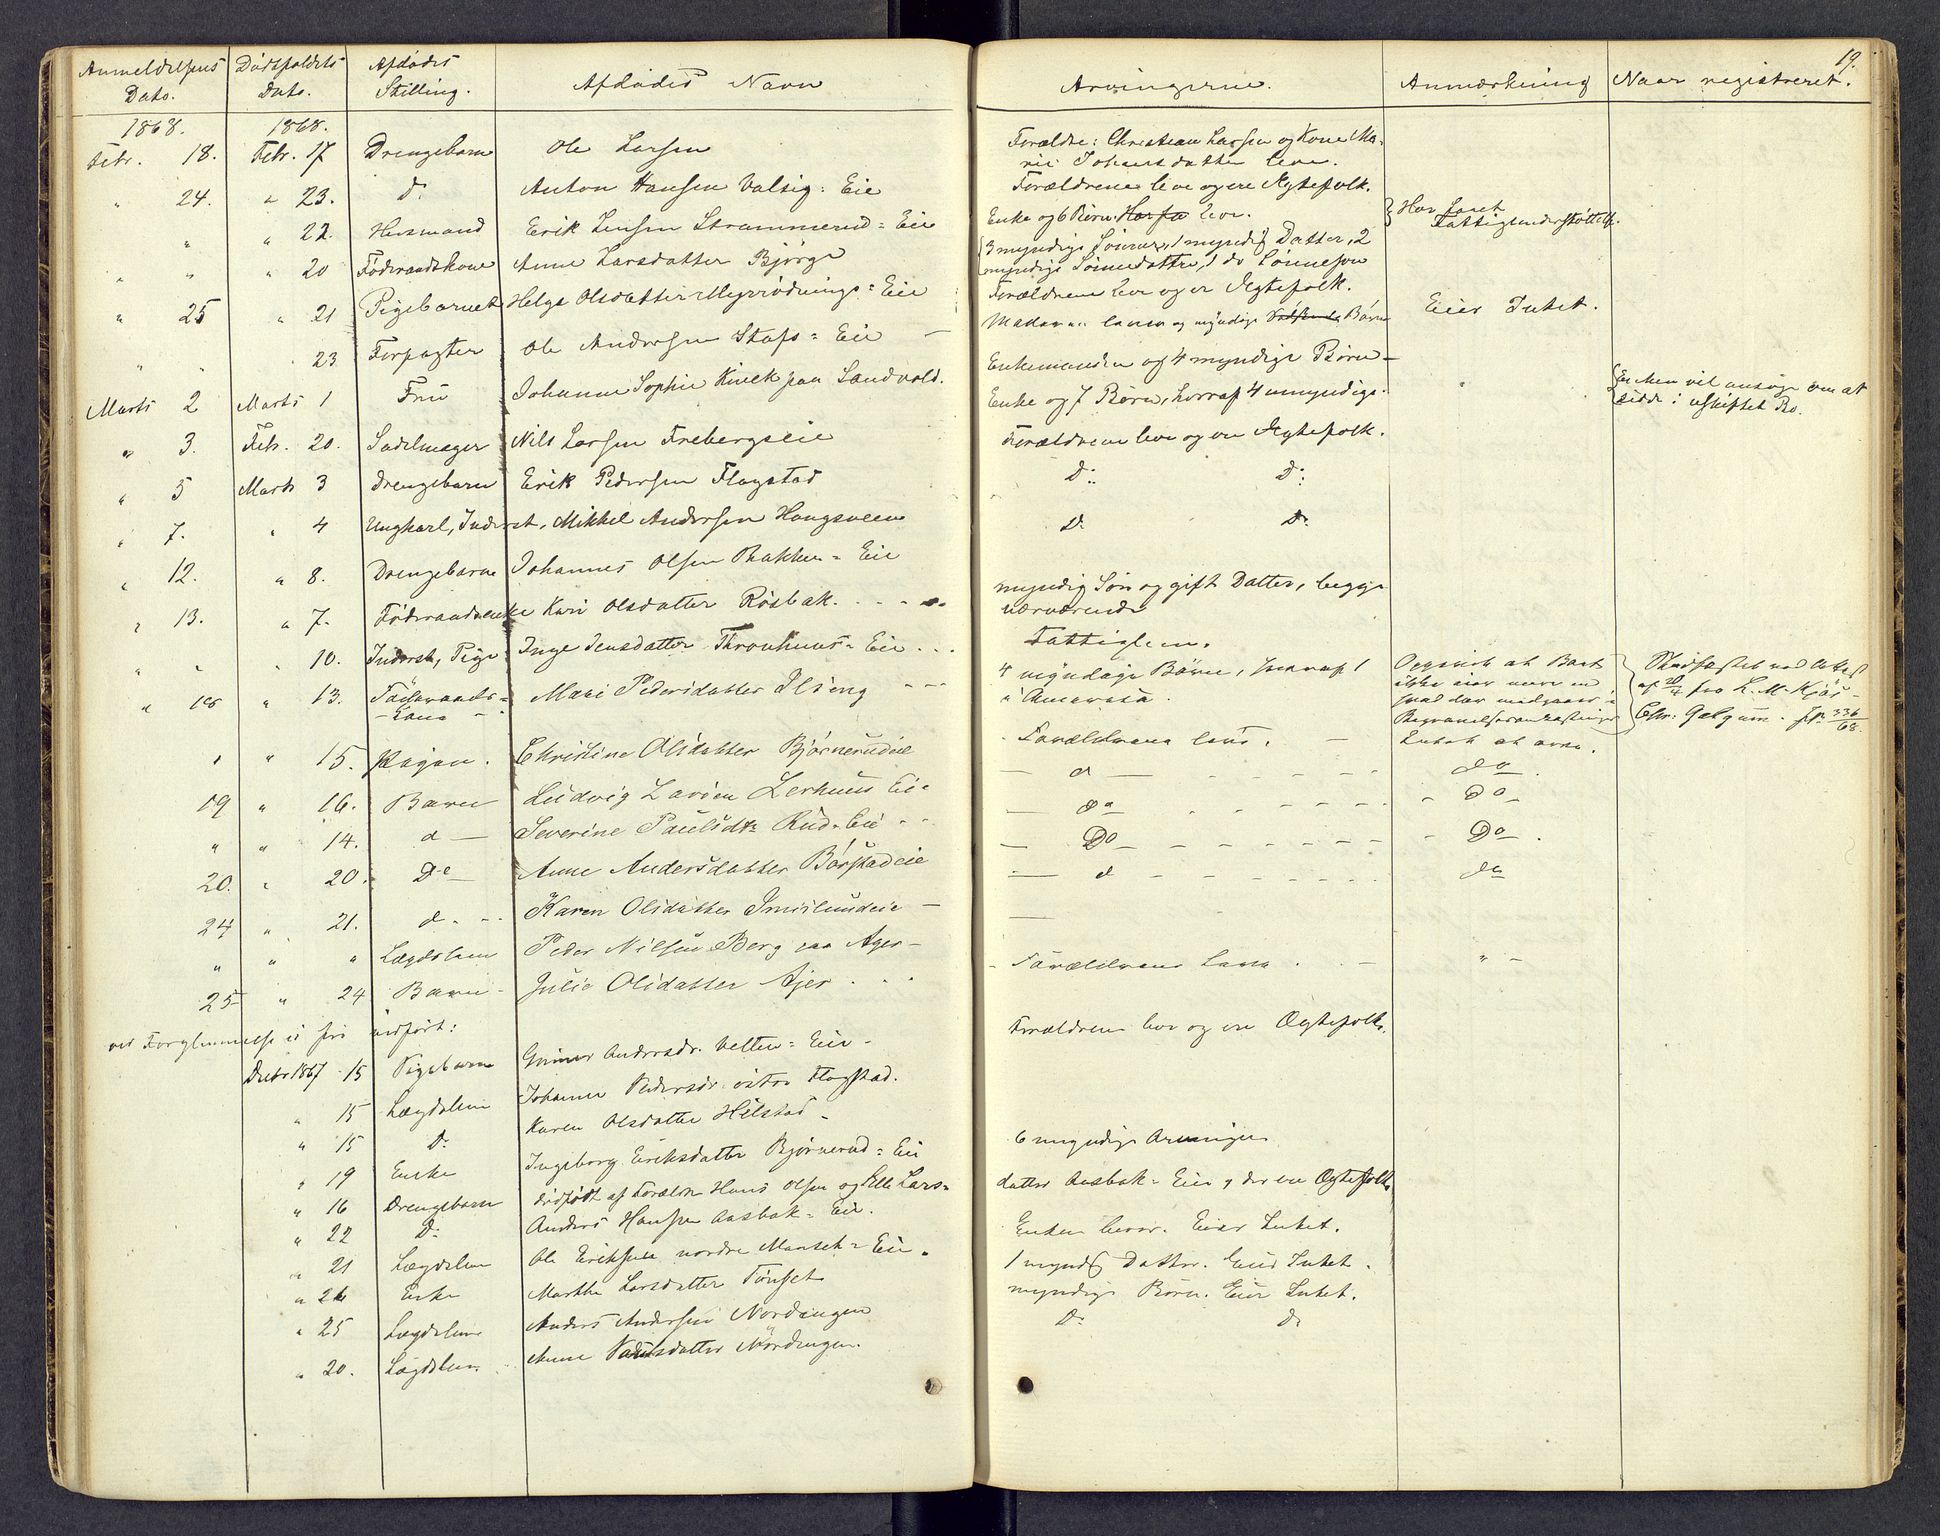 19.
Anmeldelsens Dato. Dödsfaldets Dato. Afdödes Stilling. Afdödes Navn Arvingerne. Anmærkning Naar registreret.
1868. 1868.
Febr. 18. Febr. 17 Drengebarn Ole Larsen Forældre: Christian Larsen og Kone Ma-
rie Johansdatter leve.
" 24. " 23. d: Anton Hansen Valsig: Eie Forældrene leve og ere Ægtefolk.
" " 22. Huusmand Erik Jensen Strammerud= Eie Enke og 6 Börn leve. Har havt
Fattigunderstöttelse.
" " " 20 Föderaadskone Anne Larsdatter Bjørge 3 myndige Sönner, 1 myndig Datter, 2
myndige Sönnedöttre, 1 do Sönnesön
" 25 " 21 Pigebarnet Helge Olsdatter Myrrödnings= Eie Forældrene leve og er Ægtefolk.
" " " 23 Forpagter Ole Andersen Stafs= Eie og myndige Börn Eier Intet.
Marts 2 Marts 1 Fru Johanne Sophie Kinck paa Sandvold. Enkemanden og 4 myndige Börn
" 3. Febr. 20. Sadelmager Nils Larsen Frebergseie Enke og 7 Börn, hvoraf 4 umyndige. " Enken vil ansøge om at
sidde i uskiftet Bo.
" 5 Marts 3 Drengebarn Erik Pedersen Flagstad Forældrene leve og ere Ægtefolk.
" 7. " 4 Ungkarl, Inderst, Mikkel Andersen Haugsveen D: D:
" 12. " 8. Drengebarn Johannes Olsen Bakken= Eie D. D.
" 13. " 7. Föderaadsenke Kari Olsdatter Rösbak. myndig Sön og gift Datter, begge
nærværende
" " " 10. Inderst, Pige Inge Jensdatter Thronhuus= Eie Fattiglem.
" 18 " 13. Föderaads-
Kone Mari Pedersdatter Ilseng 4 myndige Börn, hvoraf 1
i Amerika. Opgivet at Boet
ikke eier mere end
hvad der medgaaer i
Begravelsesomkostninger Stadfæstet ved
af 20/4 fra L. M. Kjös
Chr: Galgum. 336/68.
" " 15. Pigen. Christine Olsdatter Bjørnerudeie Forældrene leve. Intet at arve.
19 " 16. Barn Ludvig Larsen Lerhuus Eie d do.
" " 14. d Severine Paulsdtr Rud= Eie do Do
20. " 20. Do Anne Andersdatter Börstadeie Do Do.
24 " 21. d. Karen Olsdatter Imislundeie d do
" " " Lægdslem Peder Nilsen Berg paa Ager
25 " 24 Barn Julie Olsdatter Ajer Forældrene Leve "
ved Forglemmelse ei før indfört:
Decbr 1867 15 Pigebarn Gunner Andersdr. Velten= Eie Forældrene leve og ere Ægtefolk.
" 15 Lægdslem Johanne Pedersdr östre Flagstad.
" 15 D: Karen Olsdatter Hilstad
" 19 Enke Ingeborg Eriksdatter Bjørnerud= Eie 6 myndige Arvinger
" 16 Drengebarn dödfödt af Forældre Hans Olsen og Elle Lars=
datter Aasbak= Eie, der ere Ægtefolk.
" 22 D: Anders Hansen Aasbak= Eie.
" 21 Lægdslem Ole Eriksen nordre Mansch= Eie. Enken lever. Eier Intet.
" 26 Enke Marthe Larsdatter Tönset 1 myndig Datter. Eier Intet.
" 25 Lægdslem Anders Andersen Nordengen myndige Börn. Eier Intet.
" 20. Lægdslem Anne Nordengen. D: D: